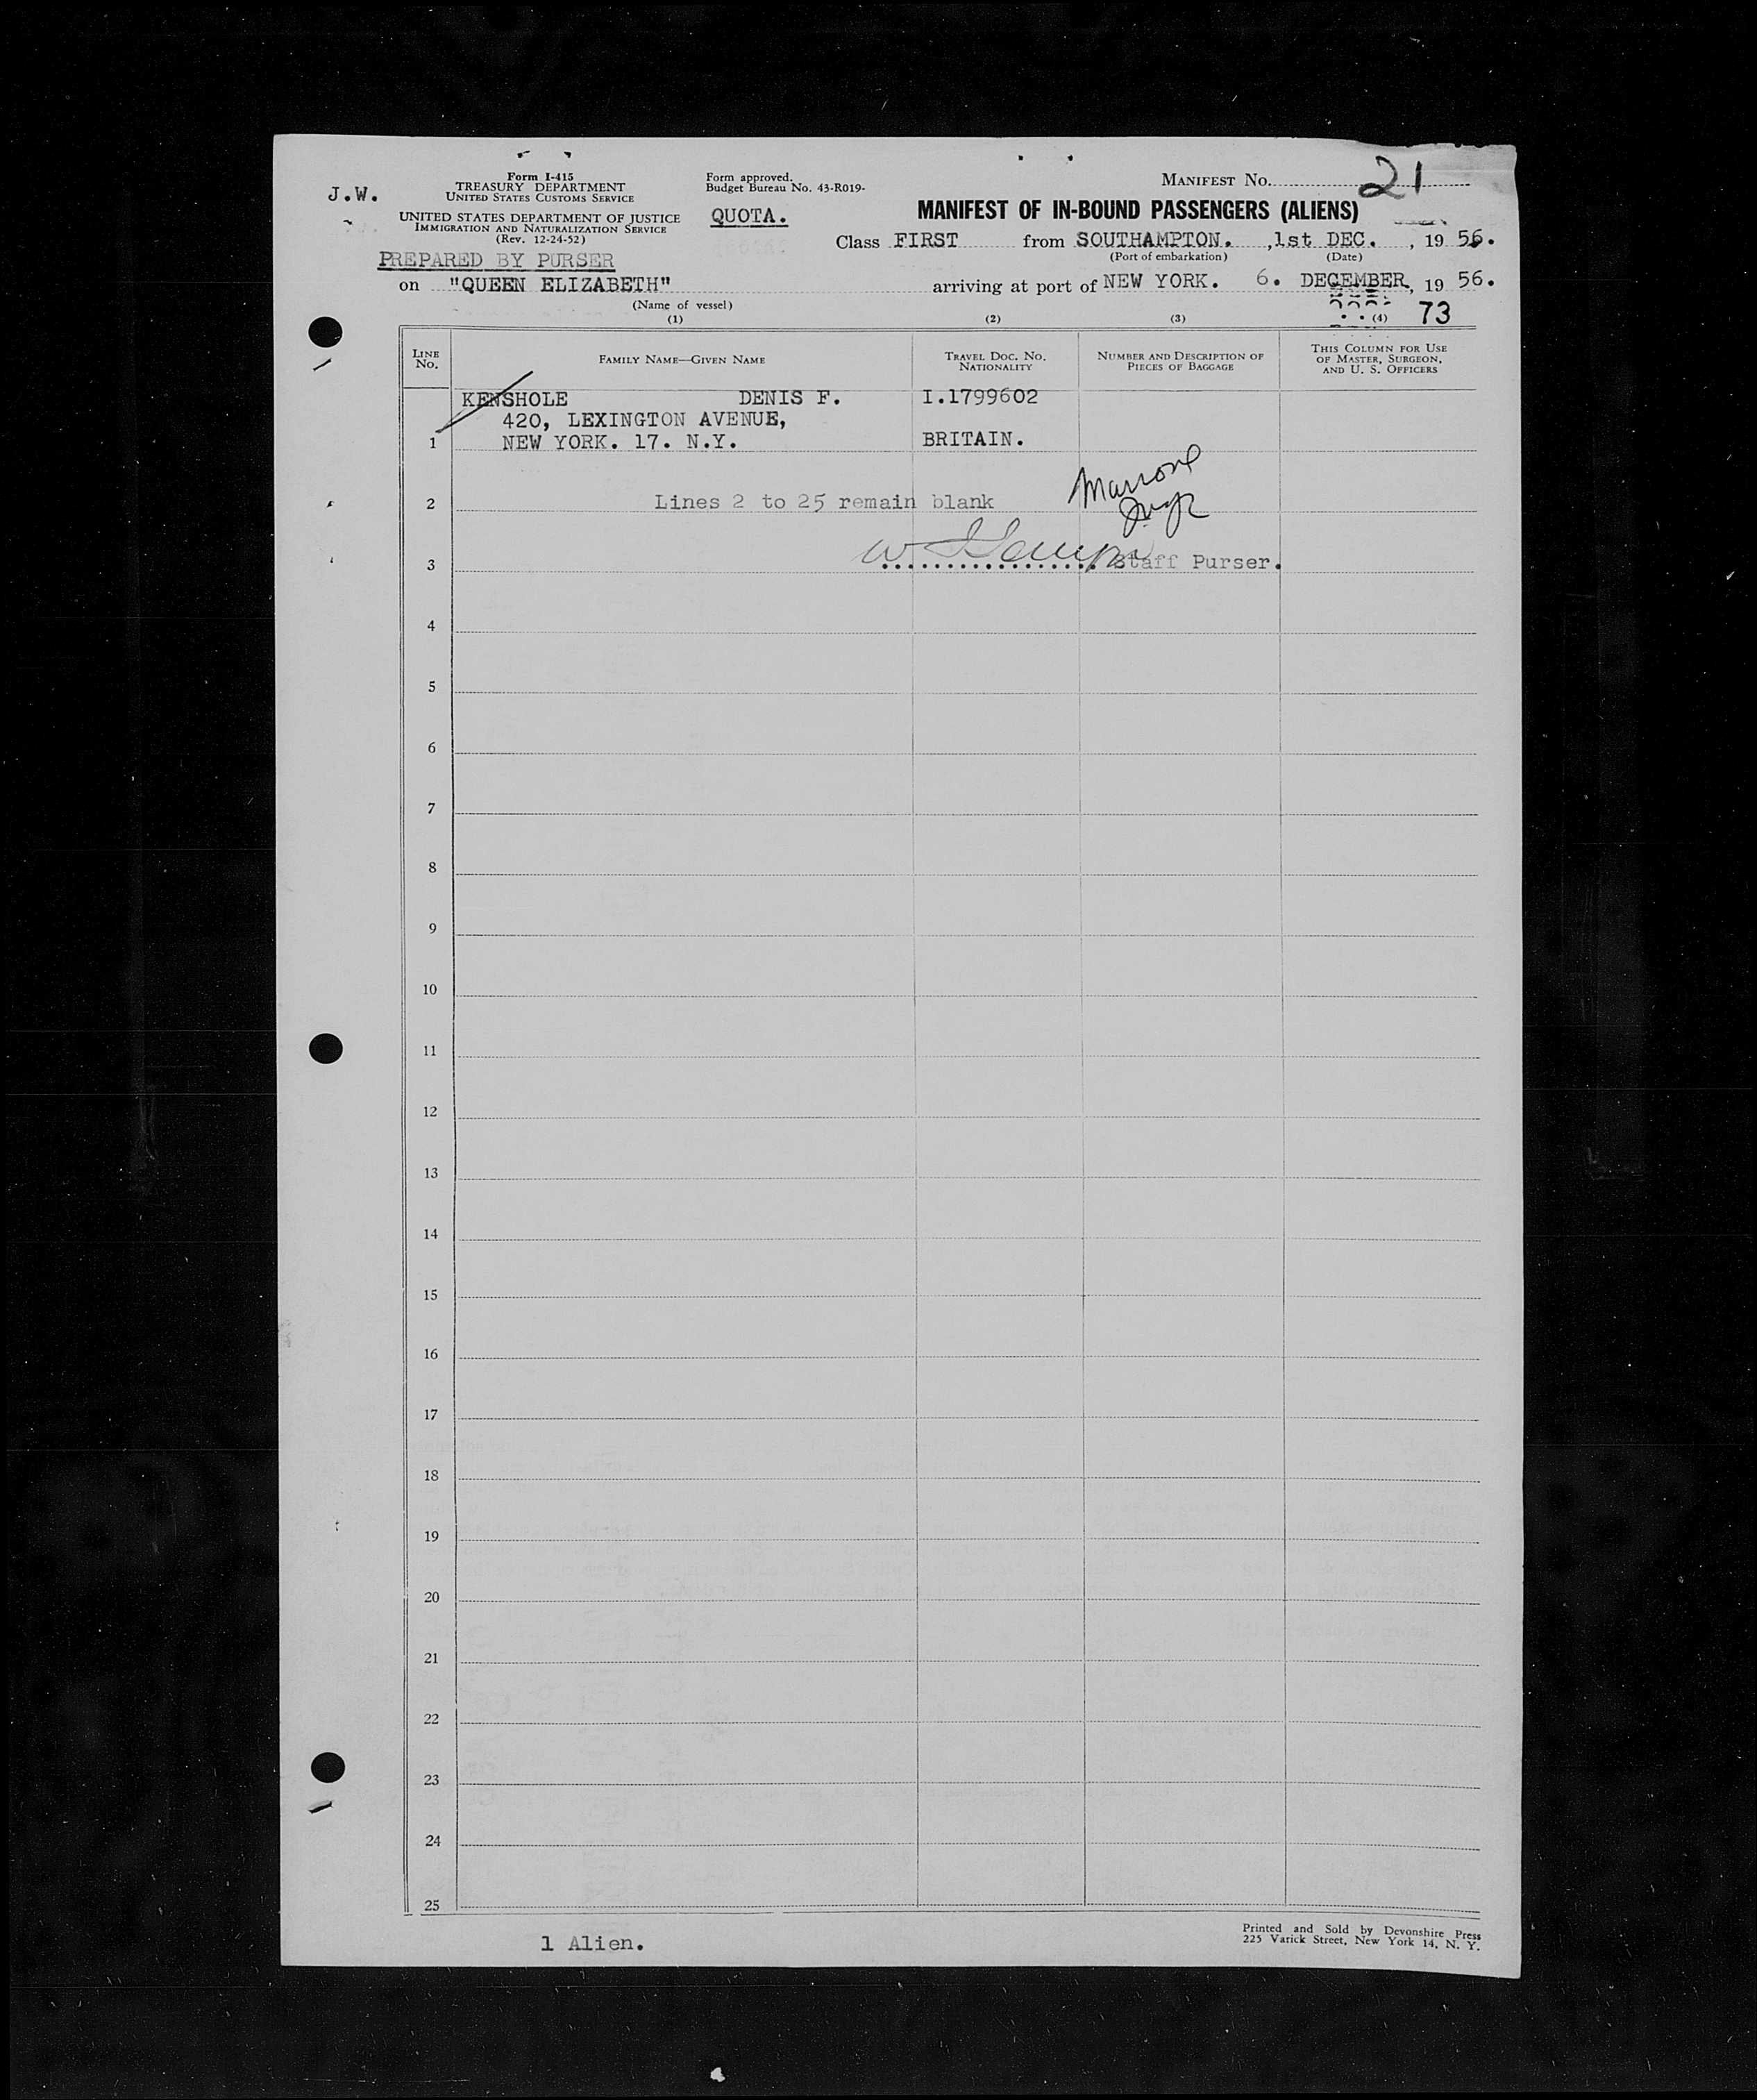 J.W.
Form I-415
TREASURY DEPARTMENT
UNITED STATES CUSTOMS SERVICE
UNITED STATES DEPARTMENT OF JUSTICE
IMMIGRATION AND NATURALIZATION SERVICE
(Rev. 12-24-52)
PREPARED BY PURSER
Form approved.
Budget Bureau No. 43-R019-
QUOTA.
MANIFEST NO. 21
MANIFEST OF IN-BOUND PASSENGERS (ALIENS)
Class FIRST from SOUTHAMPTON. , 1st DEC. , 19 56.
(Port of embarkation) (Date)
on "QUEEN ELIZABETH" arriving at port of NEW YORK. 6. DECEMBER, 19 56.
(Name of vessel)
(1) (2) (3) (4) 73
LINE NO. FAMILY NAME—GIVEN NAME TRAVEL DOC. NO. NATIONALITY NUMBER AND DESCRIPTION OF PIECES OF BAGGAGE THIS COLUMN FOR USE OF MASTER, SURGEON, AND U. S. OFFICERS
KENSHOLE DENIS F. I.1799602
420, LEXINGTON AVENUE,
1 NEW YORK. 17. N.Y. BRITAIN.
Marrone
2 Lines 2 to 25 remain blank
3 Staff Purser.
4
5
6
7
8
9
10
11
12
13
14
15
16
17
18
19
20
21
22
23
24
25
1 Alien.
Printed and Sold by Devonshire Press
225 Varick Street, New York 14, N. Y.